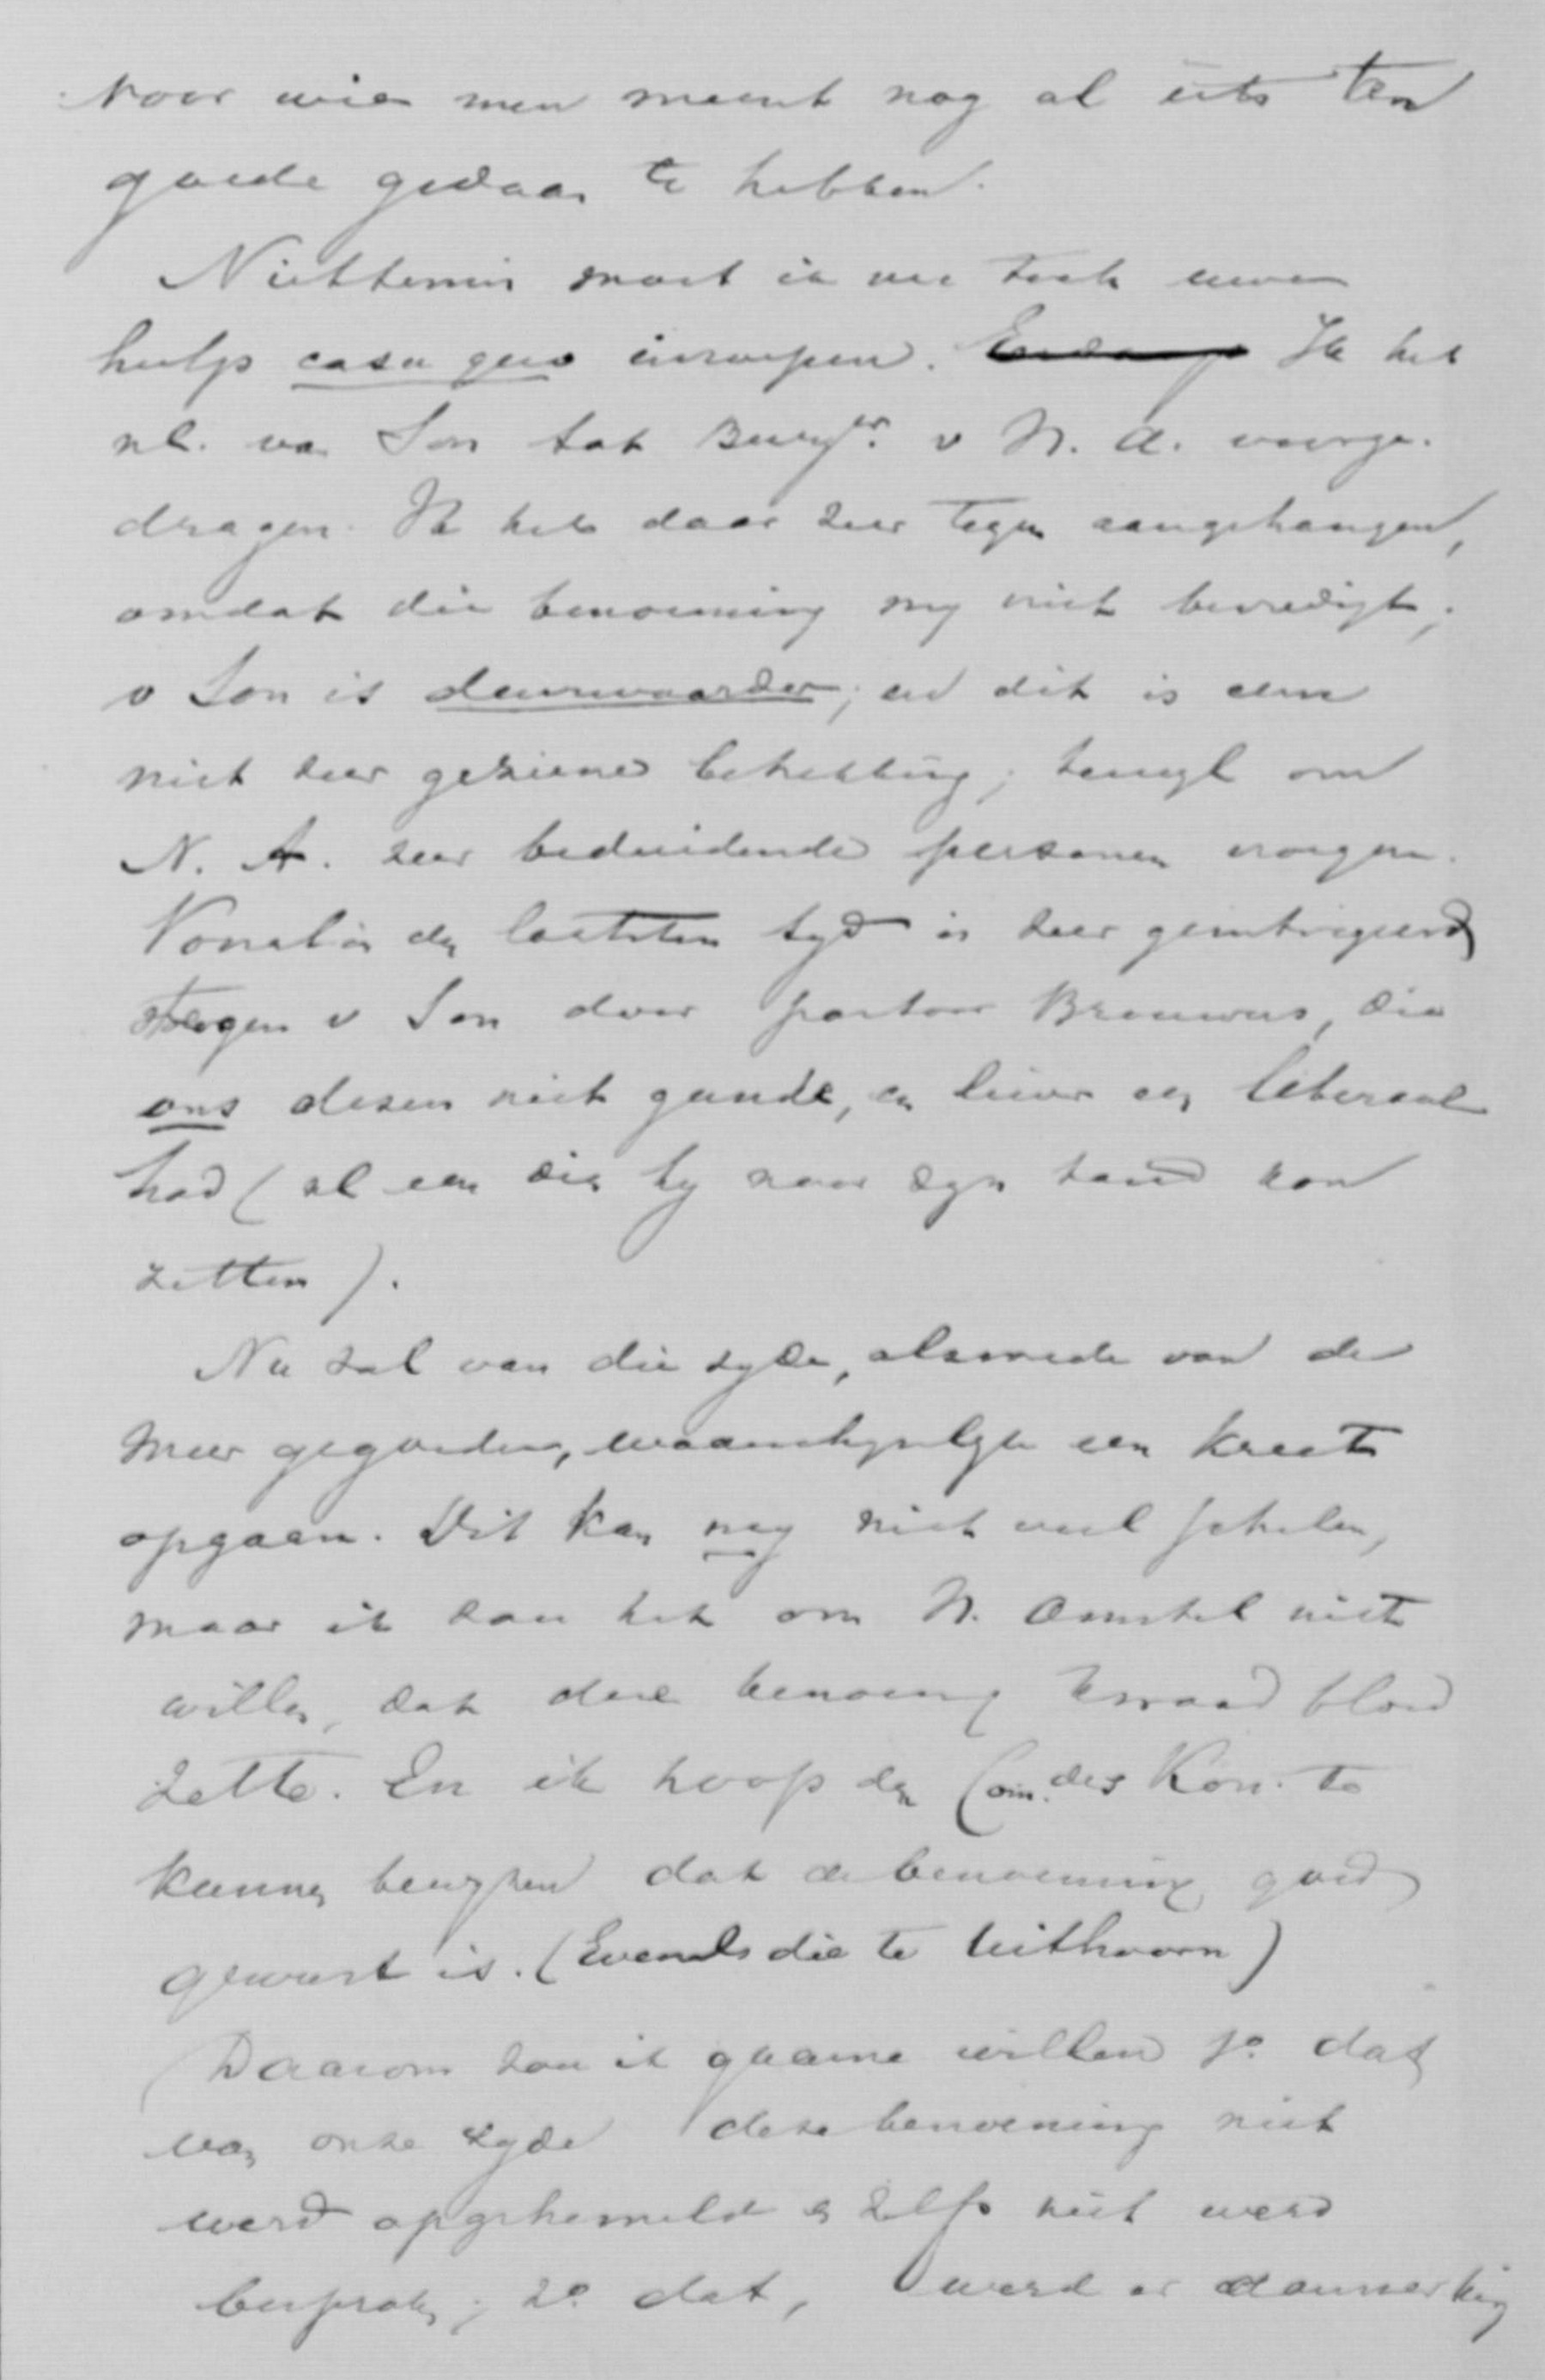 voor wien men meent nog al iets ten
goede gedaan te hebben.
Niettemin moet ik uw toch uwe
hulp casu quo inroepen. Ik heb
nl. van Son tot Burgr. v N. A. voorge-
dragen. Ik heb daar zeer tegen aangehangen,
omdat die benoeming my niet bevredigt;
v Son is deurwaarder; en dit is eene
niet zeer geziene betrekking; terwyl om
N. A. zeer beduidende personen vroegen.
Vooral in den laatsten tyd is zeer geintrigeerd
tegen v Son door pastoor Brouwers, die
ons dezen niet gunde, en liever een liberaal
had (al een die hy naar zyn hand kon
zetten).
Nu zal van die zyde, alsmede van de
meer gegoeden, waarschynlyk een kreet
opgaan. Dit kan my niet veel schelen,
maar ik zou het om N. Amstel niet
willen, dat deze benoeming kwaad bloed
zette. En ik hoop den Com. des Kon. te
kunnen bewyzen dat de benoeming goed
geweest is. (Evenals die te Uithoorn)
Daarom zou ik gaarne willen 1o dat
van onze zyde deze benoeming niet
werd opgehemeld en zelfs niet werd
besproken; 2o dat, werd er aanmerking